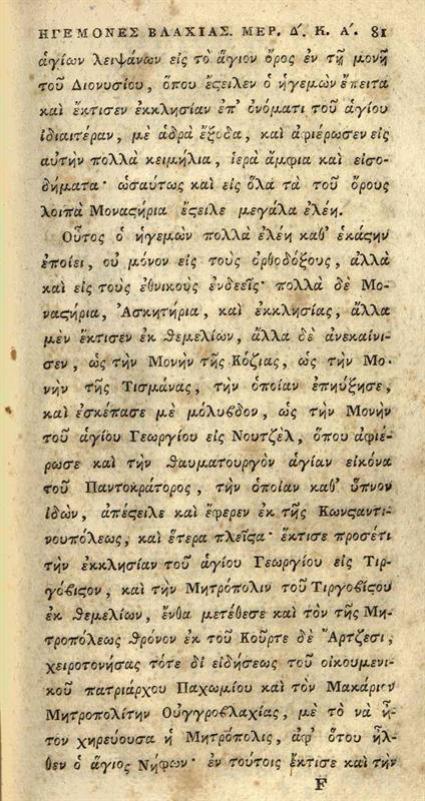 ΗΓΕΜΟΝΕΣ ΒΛΑΧΙΑΣ. ΜΕΡ. Δ΄. Κ. Α΄. 81
ἁγίων λειψάνων εἰς τὸ ἅγιον ὄρος ἐν τῇ μονῇ
τοῦ Διονυσίου, ὅπου ἔϛειλεν ὁ ἡγεμὼν ἔπειτα
καὶ ἔκτισεν ἐκκλησίαν ἐπ' ὀνόματι τοῦ ἁγίου
ἰδιαιτέραν, μὲ ἁδρὰ ἔξοδα, καὶ ἀφιέρωσεν εἰς
αὐτὴν πολλὰ κειμήλια, ἱερὰ ἄμφια καὶ εἰσο-
δήματα· ὡσαύτως καὶ εἰς ὅλα τὰ τοῦ ὄρους
λοιπὰ Μοναϛήρια ἔϛειλε μεγάλα ἐλέη.
Οὗτος ὁ ἡγεμὼν πολλὰ ἐλέη καθ' ἑκάϛην
ἐποίει, οὐ μόνον εἰς τοὺς ὀρθοδόξους, ἀλλὰ
καὶ εἰς τοὺς ἐθνικοὺς ἐνδεεῖς· πολλὰ δὲ Μο-
ναϛήρια, Ἀσκητήρια, καὶ ἐκκλησίας, ἄλλα
μὲν ἔκτισεν ἐκ θεμελίων, ἄλλα δὲ ἀνεκαίνι-
σεν, ὡς τὴν Μονὴν τῆς Κόζιας, ὡς τὴν Μο-
νὴν τῆς Τισμάνας, τὴν ὁποίαν ἐπηύξησε,
καὶ ἐσκέπασε μὲ μόλυβδον, ὡς τὴν Μονὴν
τοῦ ἁγίου Γεωργίου εἰς Νουτζὲλ, ὅπου ἀφιέ-
ρωσε καὶ τὴν θαυματουργὸν ἁγίαν εἰκόνα
τοῦ Παντοκράτορος, τὴν ὁποίαν καθ' ὕπνον
ἰδὼν, ἀπέϛειλε καὶ ἔφερεν ἐκ τῆς Κωνϛαντι-
νουπόλεως, καὶ ἕτερα πλεῖϛα· ἔκτισε προσέτι
τὴν ἐκκλησίαν τοῦ ἁγίου Γεωργίου εἰς Τιρ-
γόβιϛον, καὶ τὴν Μητρόπολιν τοῦ Τιργοβίϛου
ἐκ θεμελίων, ἔνθα μετέθεσε καὶ τὸν τῆς Μη-
τροπόλεως θρόνον ἐκ τοῦ Κοῦρτε δὲ Ἄρτζεσι,
χειροτονήσας τότε δι' εἰδήσεως τοῦ οἰκουμενι-
κοῦ πατριάρχου Παχωμίου καὶ τὸν Μακάριον
Μητροπολίτην Οὐγγροβλαχίας, μὲ τὸ νὰ ἦ-
τον χηρεύουσα ἡ Μητρόπολις, ἀφ' ὅτου ἦλ-
θεν ὁ ἅγιος Νήφων· ἐν τούτοις ἔκτισε καὶ τὴν
F